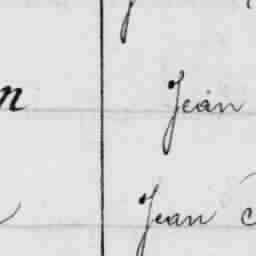 n Jean
Jean